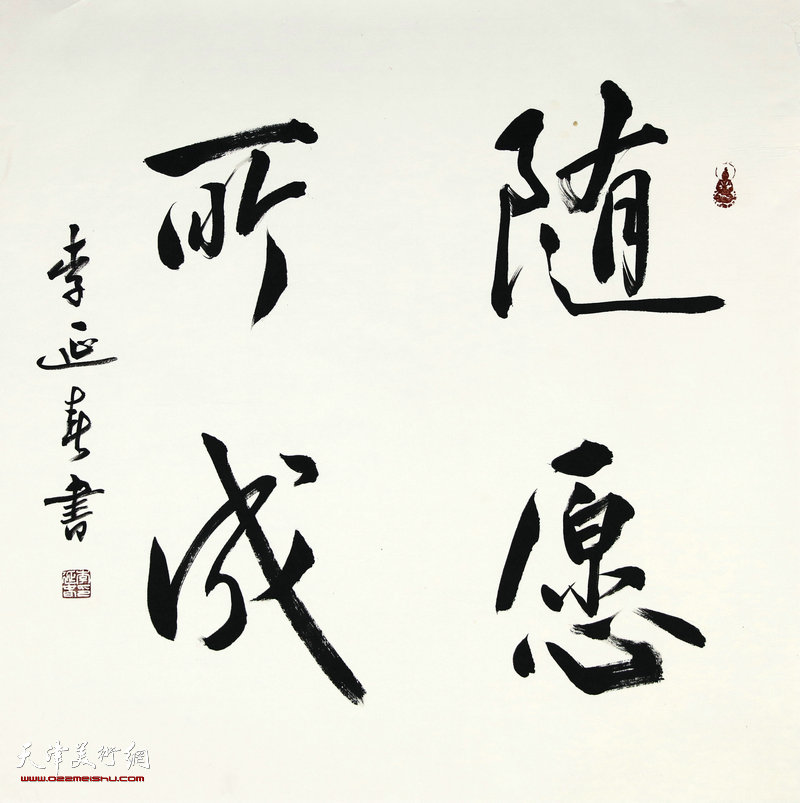 随愿
所成
李延春书
天津美術網
www.022meishu.com